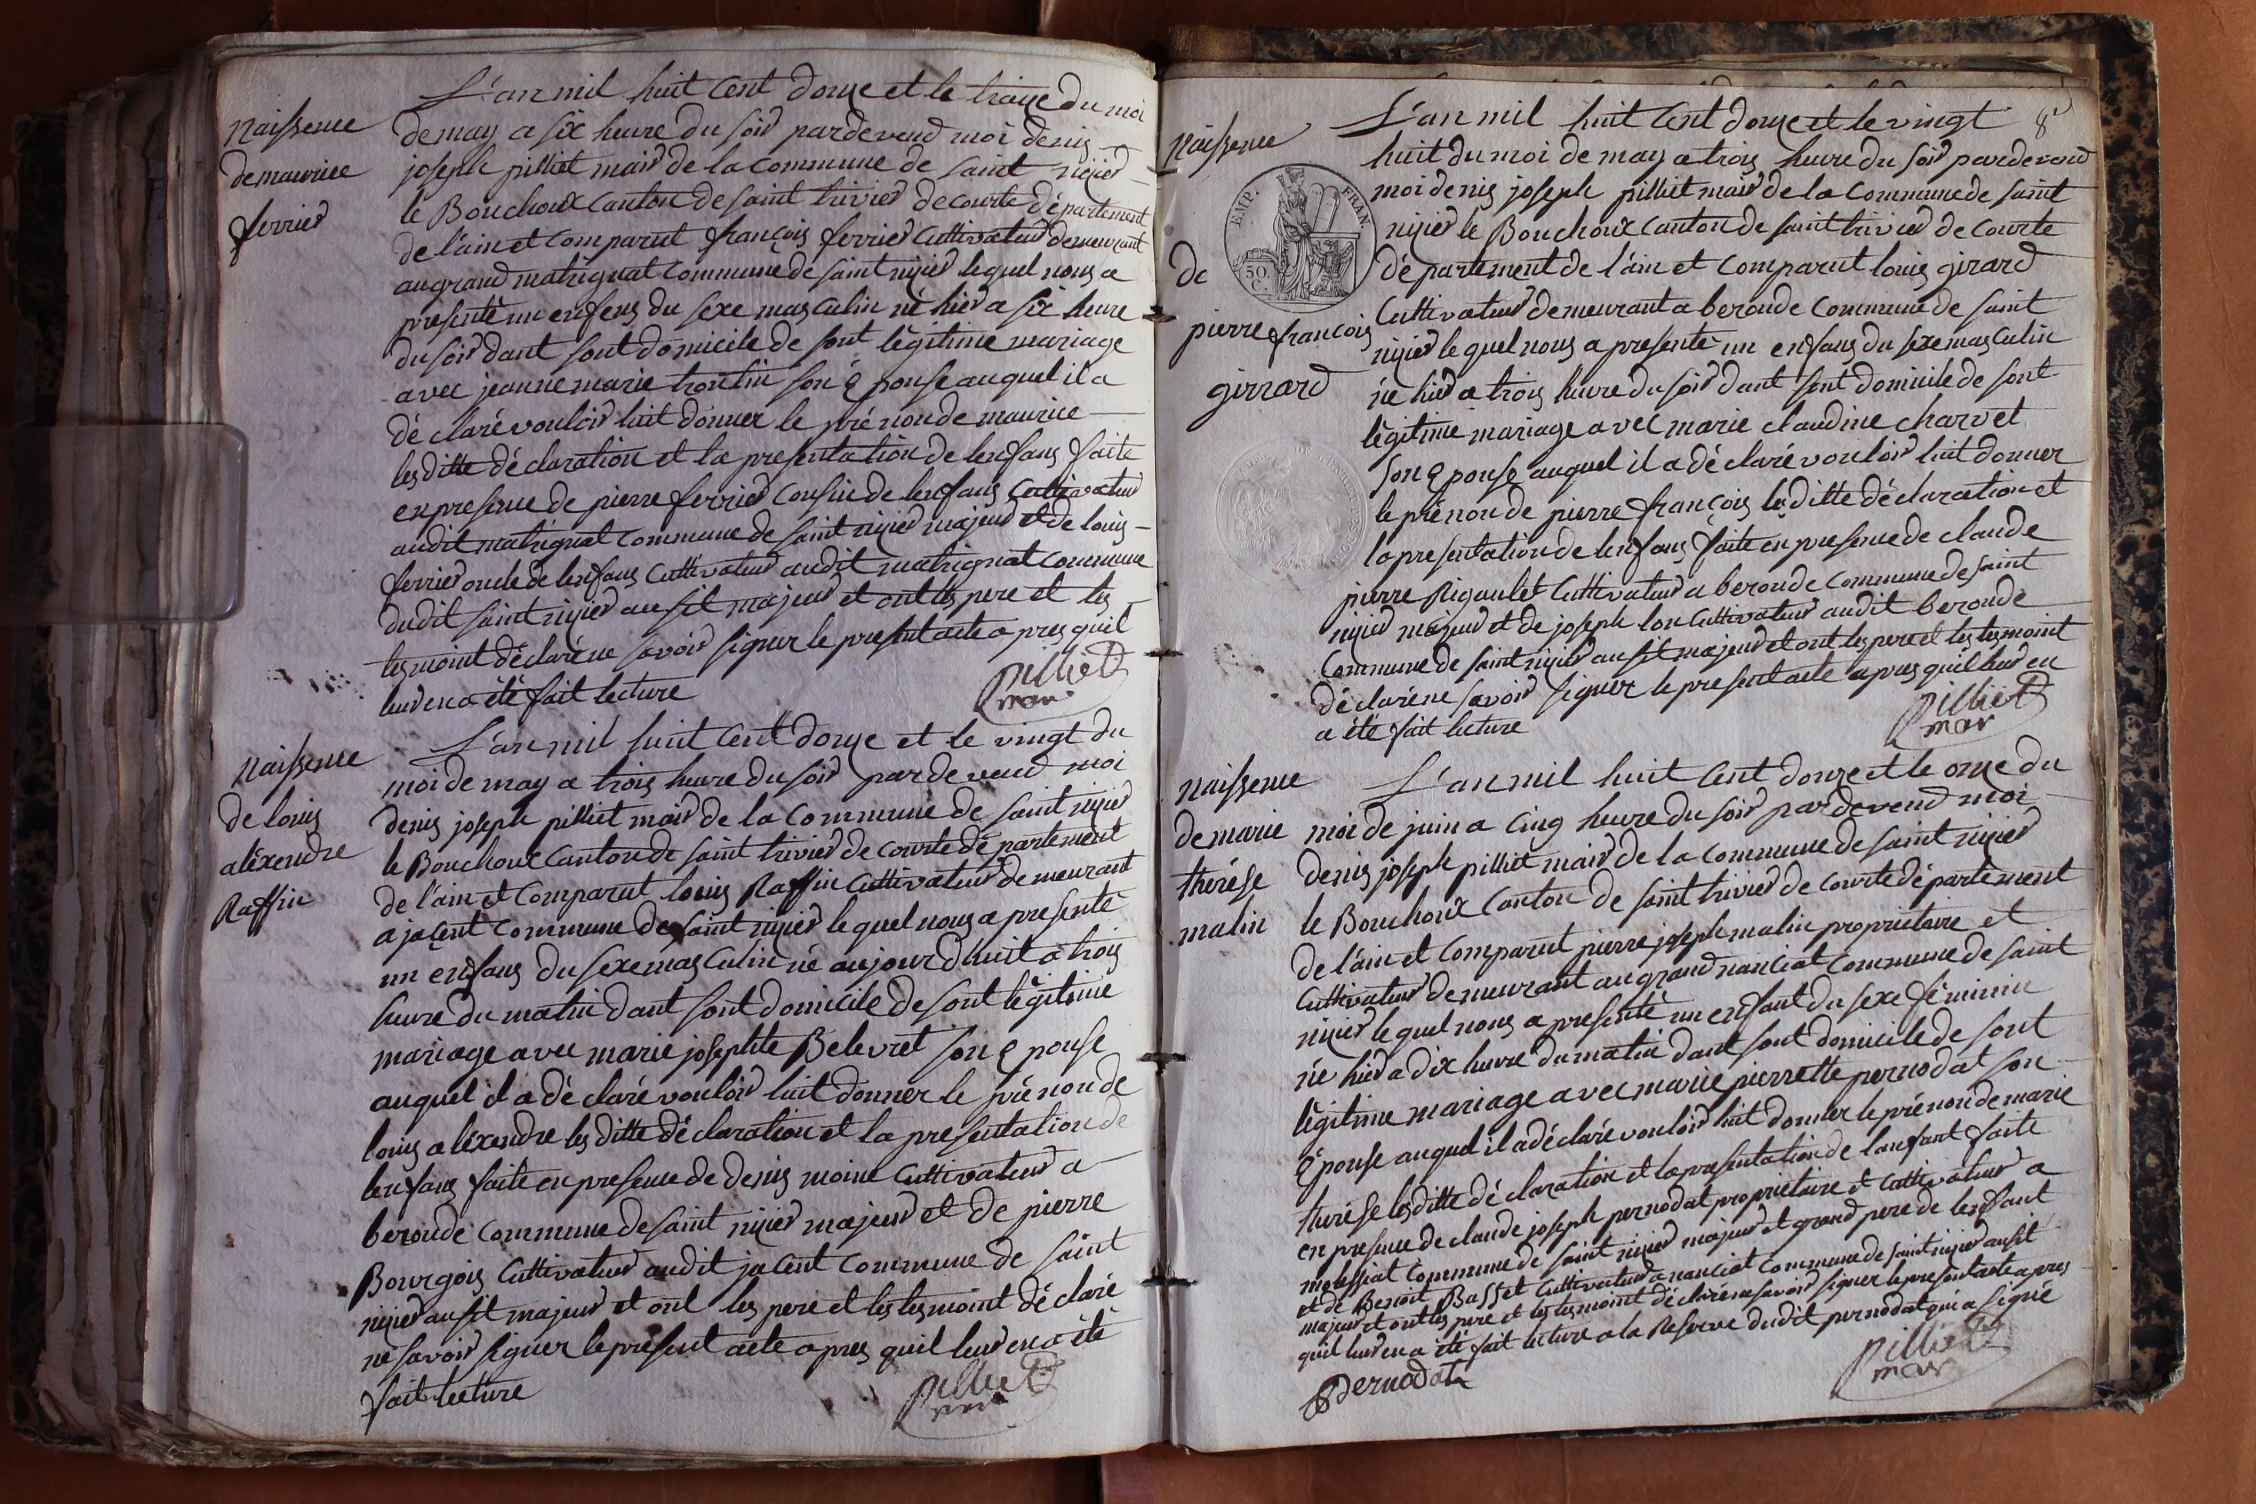 naissence
de maurice
ferrier
L'an mil huit cent douze et le traize du moi
de may a six heure du soir pardevend moi denis
joseph pilliet mair de la commune de saint nizier
le Bouchoux canton de saint trivier de courte département
de l'ain et comparut françois ferrier cultivateur demeurant
au grand matrignat commune de saint nizier lequel nous a
presenté un enfens du sexe masculin né hier a six heure
du soir dant sont domicile de sont légitime mariage
avec jeanne marie tronlin son épouse auquel il a
déclaré vouloir luit donner le prénon de maurice
les ditte déclaration et la presentation de lenfans faite
en presence de pierre ferrier cousin de lenfans cultivateur
audit matrignat commune de saint nizier majeur et de louis
ferrier oncle de lenfans cultivateur audit matrignat commune
dudit saint nizier aussit majeur et ont les pere et les
tesmoint déclaré ne savoir signer le present acte apres quil
leur en a été fait lecture
pilliet
mair
naissence
de louis
aléxendre
Raffin
L'an mil huit cent douze et le vingt du
moi de may a trois heure du soir pardevend moi
denis joseph pilliet mair de la commune de saint nizier
le Bouchoux canton de saint trivier de courte département
de l'ain et comparut louis Raffin cultivateur demeurant
a jacent commune de saint nizier lequel nous a presenté
un enfans du sexe masculin né aujourdhuit a trois
heure du matin dant sont domicile de sont légitime
mariage avec marie josephte Belevret son épouse
auquel il a déclaré vouloir luit donner le prénon de
louis aléxendre les ditte déclaration et la presentation de
lenfans faite en presence de denis moine cultivateur a
beroude commune de saint nizier majeur et de pierre
Bourgois cultivateur audit jacent commune de saint
nizier aussit majeur et ont les pere et les tesmoint déclaré
ne savoir signer le present acte apres quil leur en a été
fait lecture
pilliet
mair
8
naissence
de
pierre françois
girrard
EMP. FRAN.
50 C.
L'an mil huit cent douze et le vingt
huit du moi de may a trois heure du soir pardevend
moi denis joseph pilliet mair de la commune de saint
nizier le Bouchoux canton de saint trivier de courte
département de l'ain et comparut louis girard
cultivateur demeurant a beroude commune de saint
nizier lequel nous a presenté un enfans du sexe masculin
né hier a trois heure du soir dant sont domicile de sont
légitimé mariage avec marie claudine charvet
son épouse auquel il a déclaré vouloir luit donner
le prénon de pierre françois les ditte déclaration et
la presentation de lenfans faite en presence de claude
pierre Rigaulet cultivateur a beroude commune de saint
nizier majeur et de joseph lon cultivateur audit beroude
commune de saint nizier aussit majeur et ont les pere et les tesmoint
déclaré ne savoir signer le present acte apres quil leur en
a été fait lecture
pilliet
mair
naissence
de marie
therése
malin
L'an mil huit cent douze et le onze du
moi de juin a cinq heure du soir pardevend moi
denis joseph pilliet mair de la commune de saint nizier
le Bouchoux canton de saint trivier de courte département
de l'ain et comparut pierre joseph malin propriétaire et
cultivateur demeurant au grand nanciat commune de saint
nizier lequel nous a presenté un enfant du sexe féminin
né hier a dix heure du matin dant sont domicile de sont
légitime mariage avec marie pierrette pernodat son
épouse auquel il a déclaré vouloir luit donner le prénon de marie
therése les ditte déclaration et la presentation de lanfant faite
en presence de claude joseph pernodat propriétaire et cultivateur a
molessiat commune de saint nizier majeur et grand pere de lenfant
et de Benoit Basset cultivateur a nanciat commune de saint nizier aussit
majeur et ont les pere et les tesmoint déclaré ne savoir signer le present acte apres
quil leur en a été fait lecture a la Reserve dudit pernodat qui a signé
pernodat
pilliet
mair